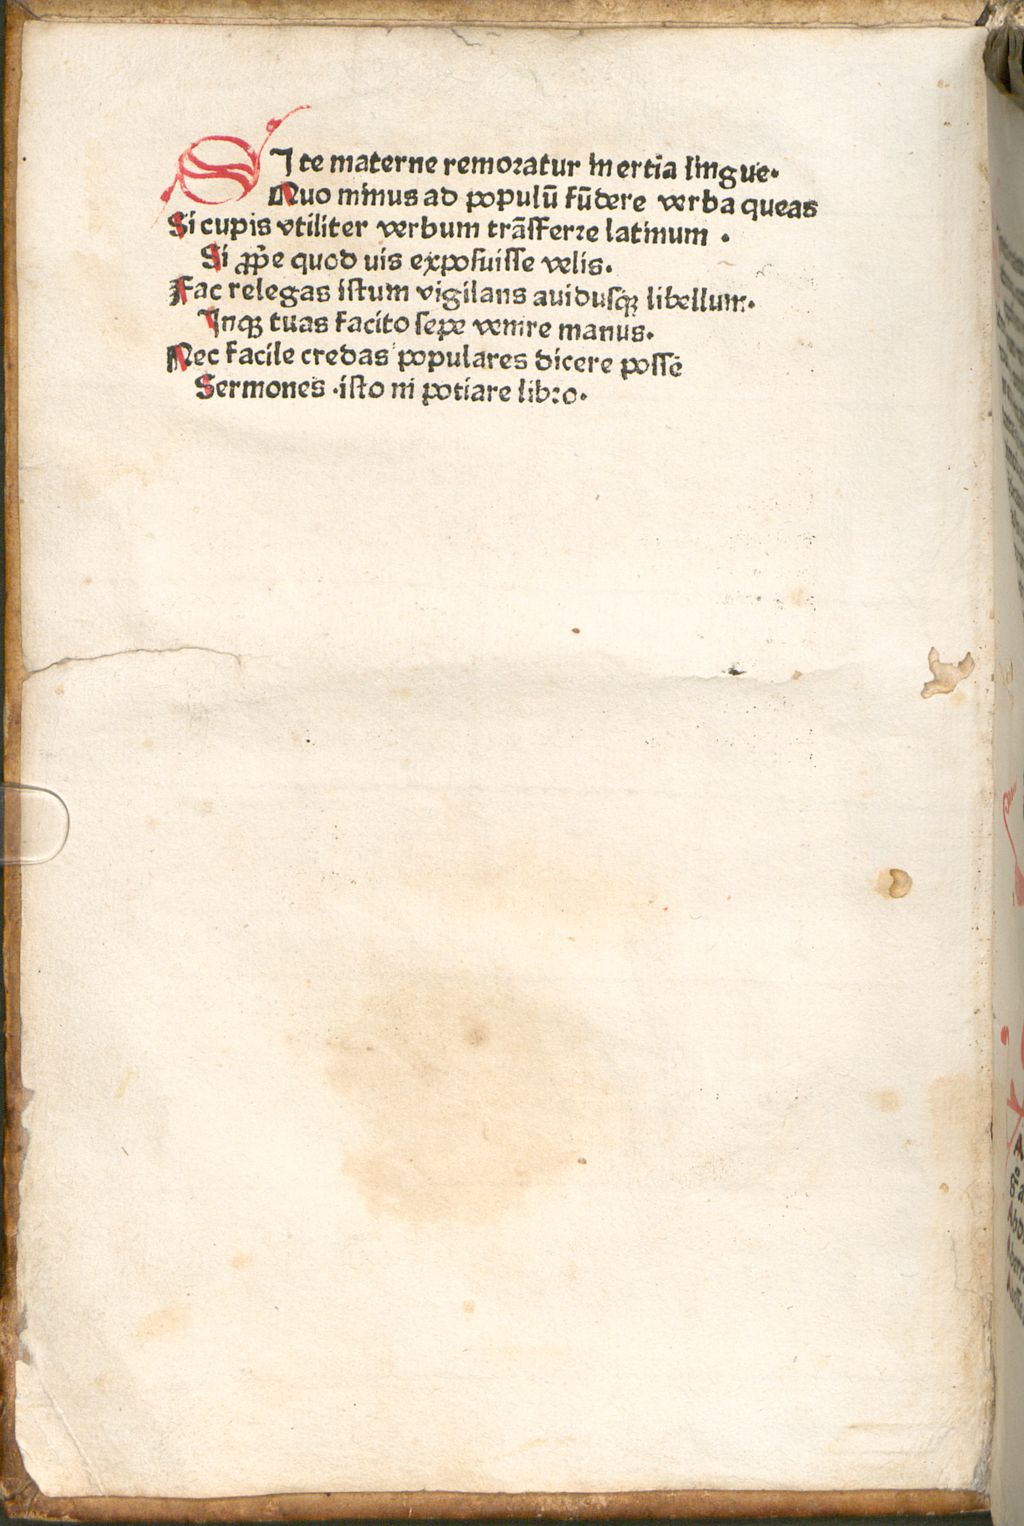 SI te materne remoratur inertia lingue.
Quo minus ad populū fūdere verba queas
Si cupis vtiliter verbum trāsferre latinum .
Si ꝓp̱e quod uis exposuisse velis.
Fac relegas istum vigilans auidusqꝫ libellum.
Inqꝫ tuas facito sepe venire manus.
Nec facile credas populares dicere possē
Sermones .isto ni potiare libro.